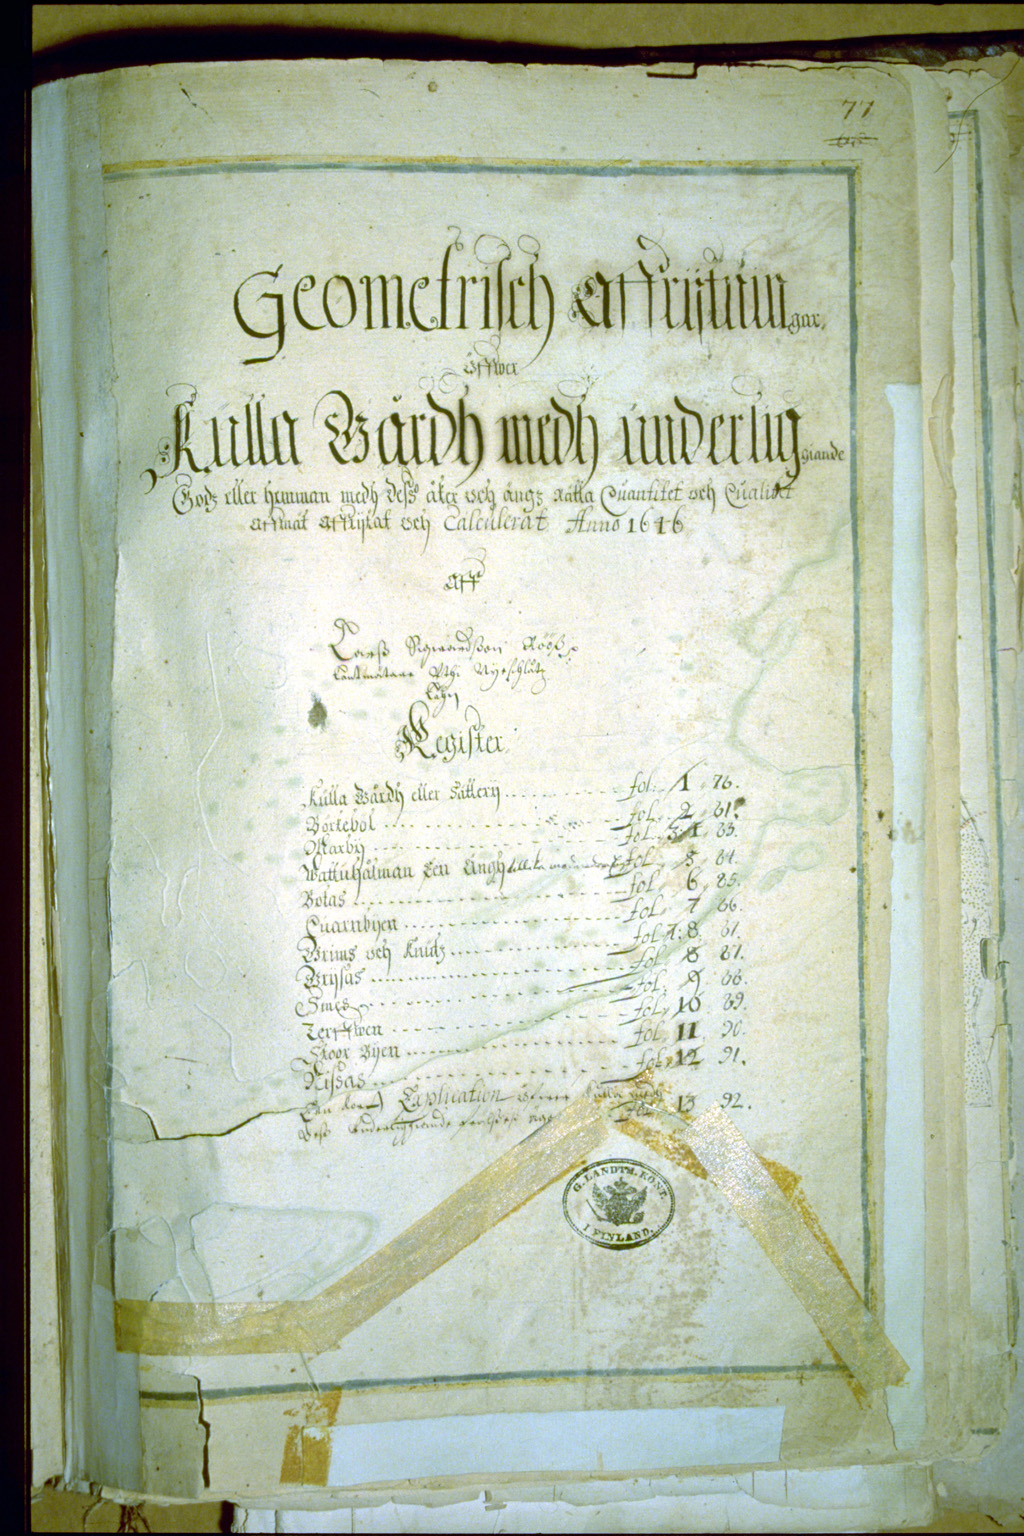 77
Geometrisch Affrijtnin
gar,
öffwer
Kulla Gårdh medh underlig
giande
Godz eller hemman medh dess åker och ängz rätta Quantitet och Qualitet
affmät affrijtat och Calculerat Anno 1646
Aff
Larss Sigwardsson
Landtmätare
Lähn
Register
Kulla Gårdh eller Sätterij fol: 1 76.
Börkeböl fol. 2 81.
Maxbij fol. 3:4 83.
Wattuhålman Een Ängh fol 5 84.
Botas fol 6 85.
Quarnbyen fol. 7 86.
Grims och Knidz fol 7:8. 87.
Grysas fol. 8 87.
Smeds fol. 9 88.
Torffwen fol. 10 89.
Skoor Byen fol 11 90.
Nissas fol. 12 91.
Een kort Explication öfwer Kulla medh
Dess Underliggiande fol. 13 92.
G. LANDTM. KONT.
I FINLAND.